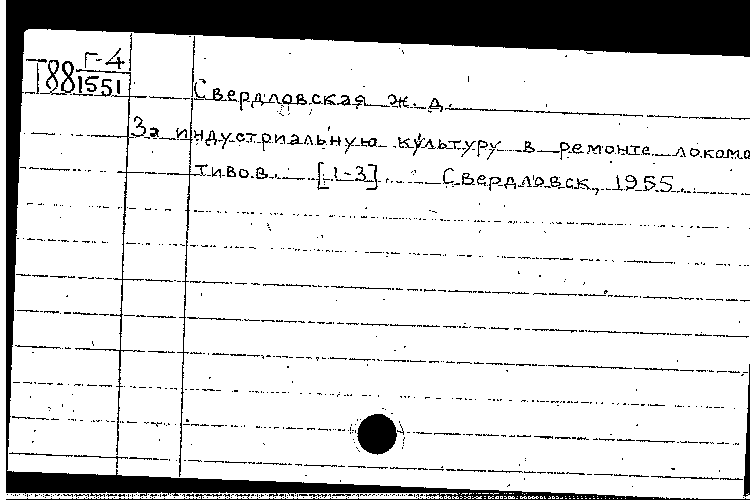 Г-4
Т88 1551
Свердловская ж. д.
За индустриальную культуру в ремонте локомо
тивов. [1-3]. Свердловск, 1955.